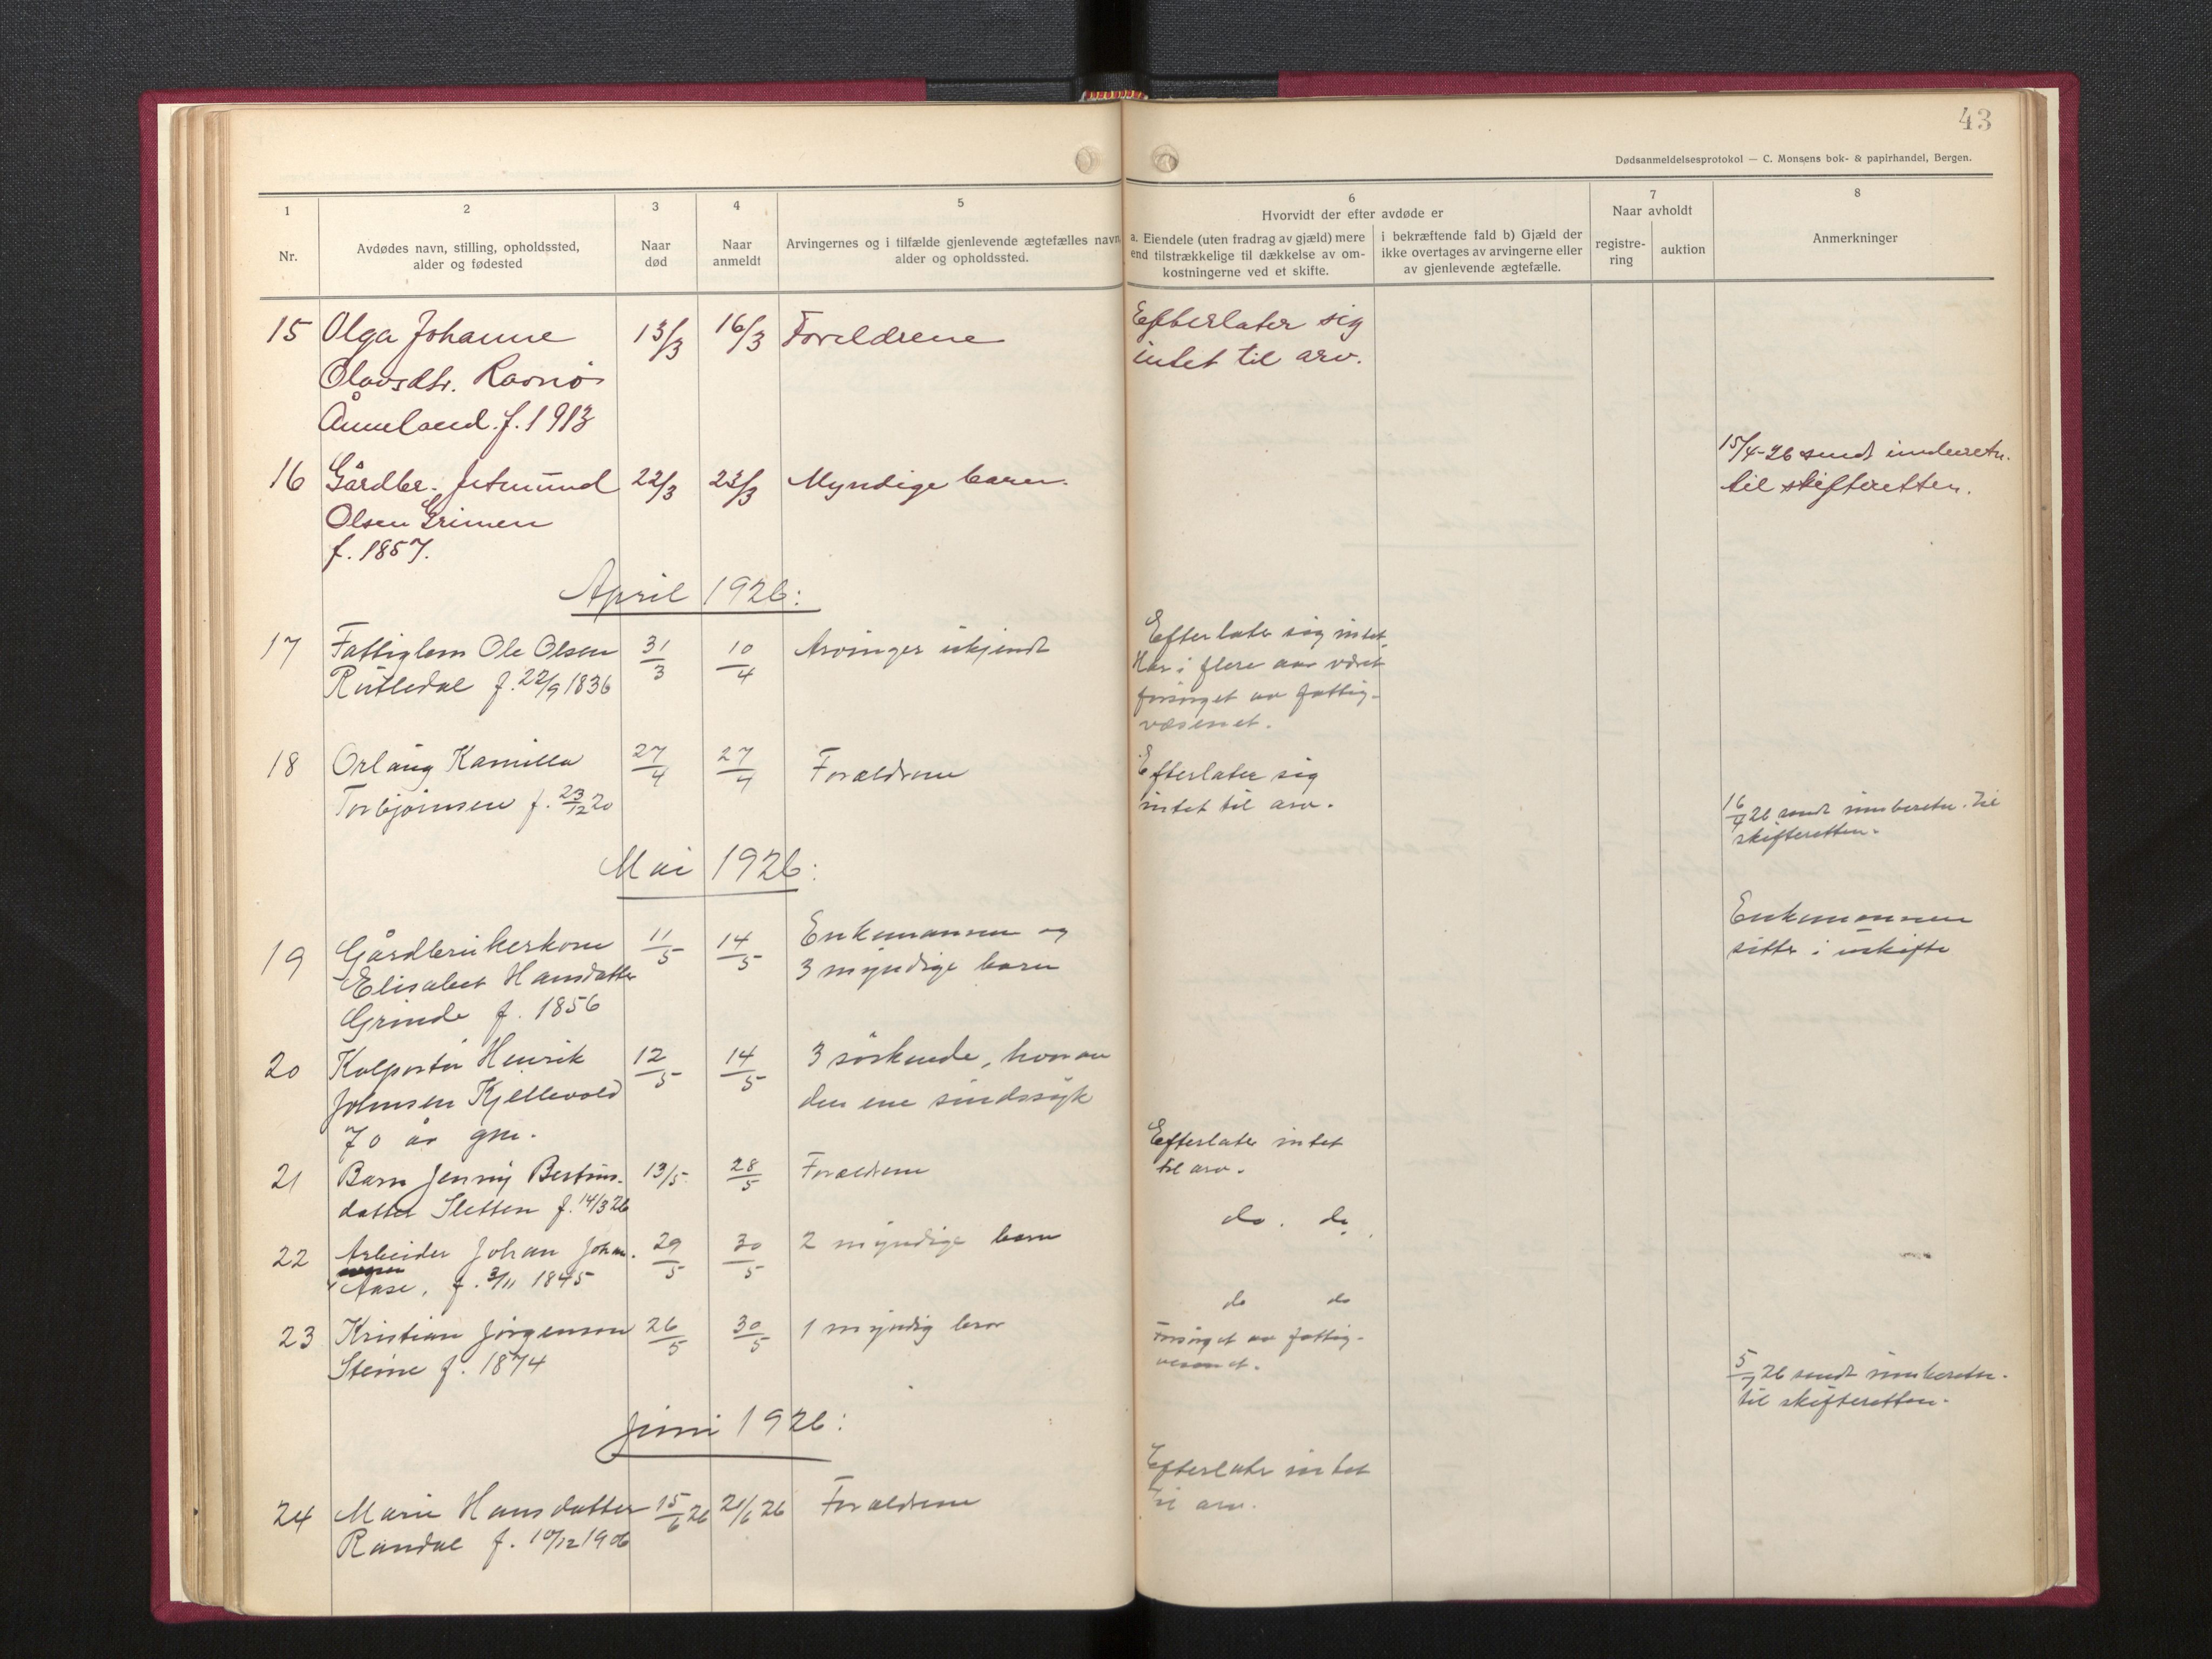 43
Dødsanmeldelsesprotokol — C. Monsens bok- & papirhandel, Bergen.
1
Nr.
2
Avdødes navn, stilling, opholdssted,
alder og fødested
3
Naar
død
4
Naar
anmeldt
5
Arvingernes og i tilfælde gjenlevende ægtefælles navn,
alder og opholdssted.
6
Hvorvidt der efter avdøde er
a. Eiendele (uten fradrag av gjæld) mere
end tilstrækkelige til dækkelse av om-
kostningerne ved et skifte.
i bekræftende fald b) Gjæld der
ikke overtages av arvingerne eller
av gjenlevende ægtefælle.
7
Naar avholdt
registre-
ring
auktion
8
Anmerkninger
15 Olga Johanne 13/3 16/3 Foreldrene Efterlater sig
Olavsdtr. intet til arv.
Åmeland. f. 1913
15/4-26 sendt innberetn.
16 Gårdbr. Jetmund 22/3 23/3 Myndige barn. til skifteretten.
Olsen Grimen
f. 1857.
April 1926:
17 Fattiglem Ole Olsen 31/3 10/4 Arvinger ukjendt Efterlater sig intet.
Rutledal f. 22/9 1836 Har i flere aar været
forsørget av fattig-
væsenet.
18 Orlaug Kamilla 27/4 27/4 Forældrene Efterlater sig
Torbjørnsen f. 23/12 20 intet til arv.
16/4 26 sendt innberetn. til
skifteretten.
Mai 1926:
19 Gårdbrukerkone 11/5 14/5 Enkemannen og Enkemannen
Elisabet Hansdatter 3 myndige barn sitter i uskifte
Grinde f. 1856
20 Kolportør Henrik 12/5 14/5 3 søskende, hvorav
Johnsen Kjellevold den ene sindssyk
70 år gm.
21 Barn Jenny Bertins- 13/5 28/5 Forældrene Efterlater intet
datter Sletten f. 14/3 26 til arv.
22 Arbeider Johan Johan- 29/5 30/5 2 myndige barn do. do.
Aase, f. 3/11 1845
23 Kristian Jörgenson 26/5 30/5 1 myndig bror do do
Steine f. 1874 Forsörget av fattig-
vesenet.
5/7 26 sendt innberetn.
til skifteretten.
Juni 1926:
24 Marie Hansdatter 15/6 26 21/6 26 Forældrene Efterlater intet
Randal f. 10/12 1906 til arv.